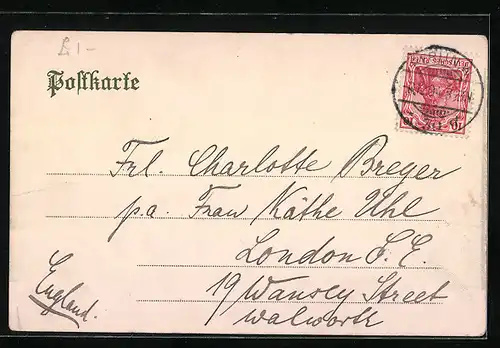 £1-
Postkarte
Frl. Charlotte Breyer
p.a. Frau Käthe Uhl
London S.E.
19 Wansey Street
Walworth
England.